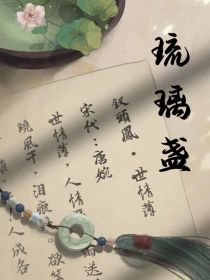 琉璃盏
钗頭鳳·世情薄
宋代：唐婉
世情薄，人情 雨送
曉風干，泪痕 欲笺
人成各